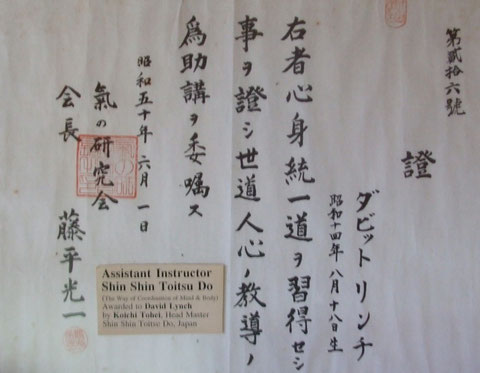 第貳拾六號
證
ダビットリンチ
昭和十四年八月十八日生
右者心身統一道ヲ習得セシ
事ヲ證シ世道人心ノ教導ノ
爲助講ヲ委嘱ス
昭和五十年六月一日
氣の研究会
会長 藤平光一
Assistant Instructor
Shin Shin Toitsu Do
(The Way of Coordination of Mind & Body)
Awarded to David Lynch
by Koichi Tohei, Head Master
Shin Shin Toitse Do, Japan